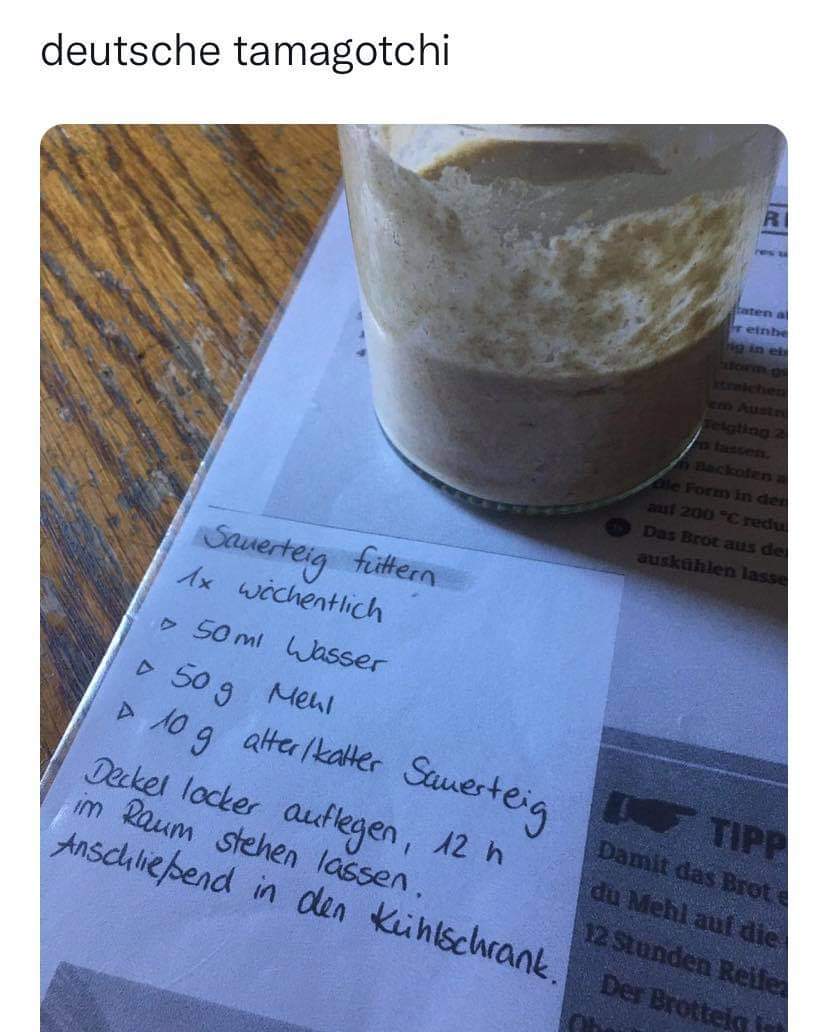 deutsche tamagotchi
Sauerteig füttern
1x wöchentlich
▷ 50 ml Wasser
▷ 50 g Mehl
▷ 10 g alter/kalter Sauerteig
Deckel locker auflegen, 12 h
im Raum stehen lassen.
Anschließend in den Kühlschrank.
aten a
r einhe
ig in ei
form g
streichen
em
Teigling 2
n lassen.
n Backofen a
die Form in den
auf 200 °C redu
Das Brot aus de
auskühlen lasse
TIPP
Damit das Brot e
du Mehl auf die
12 Stunden Reife
Der Brotteig